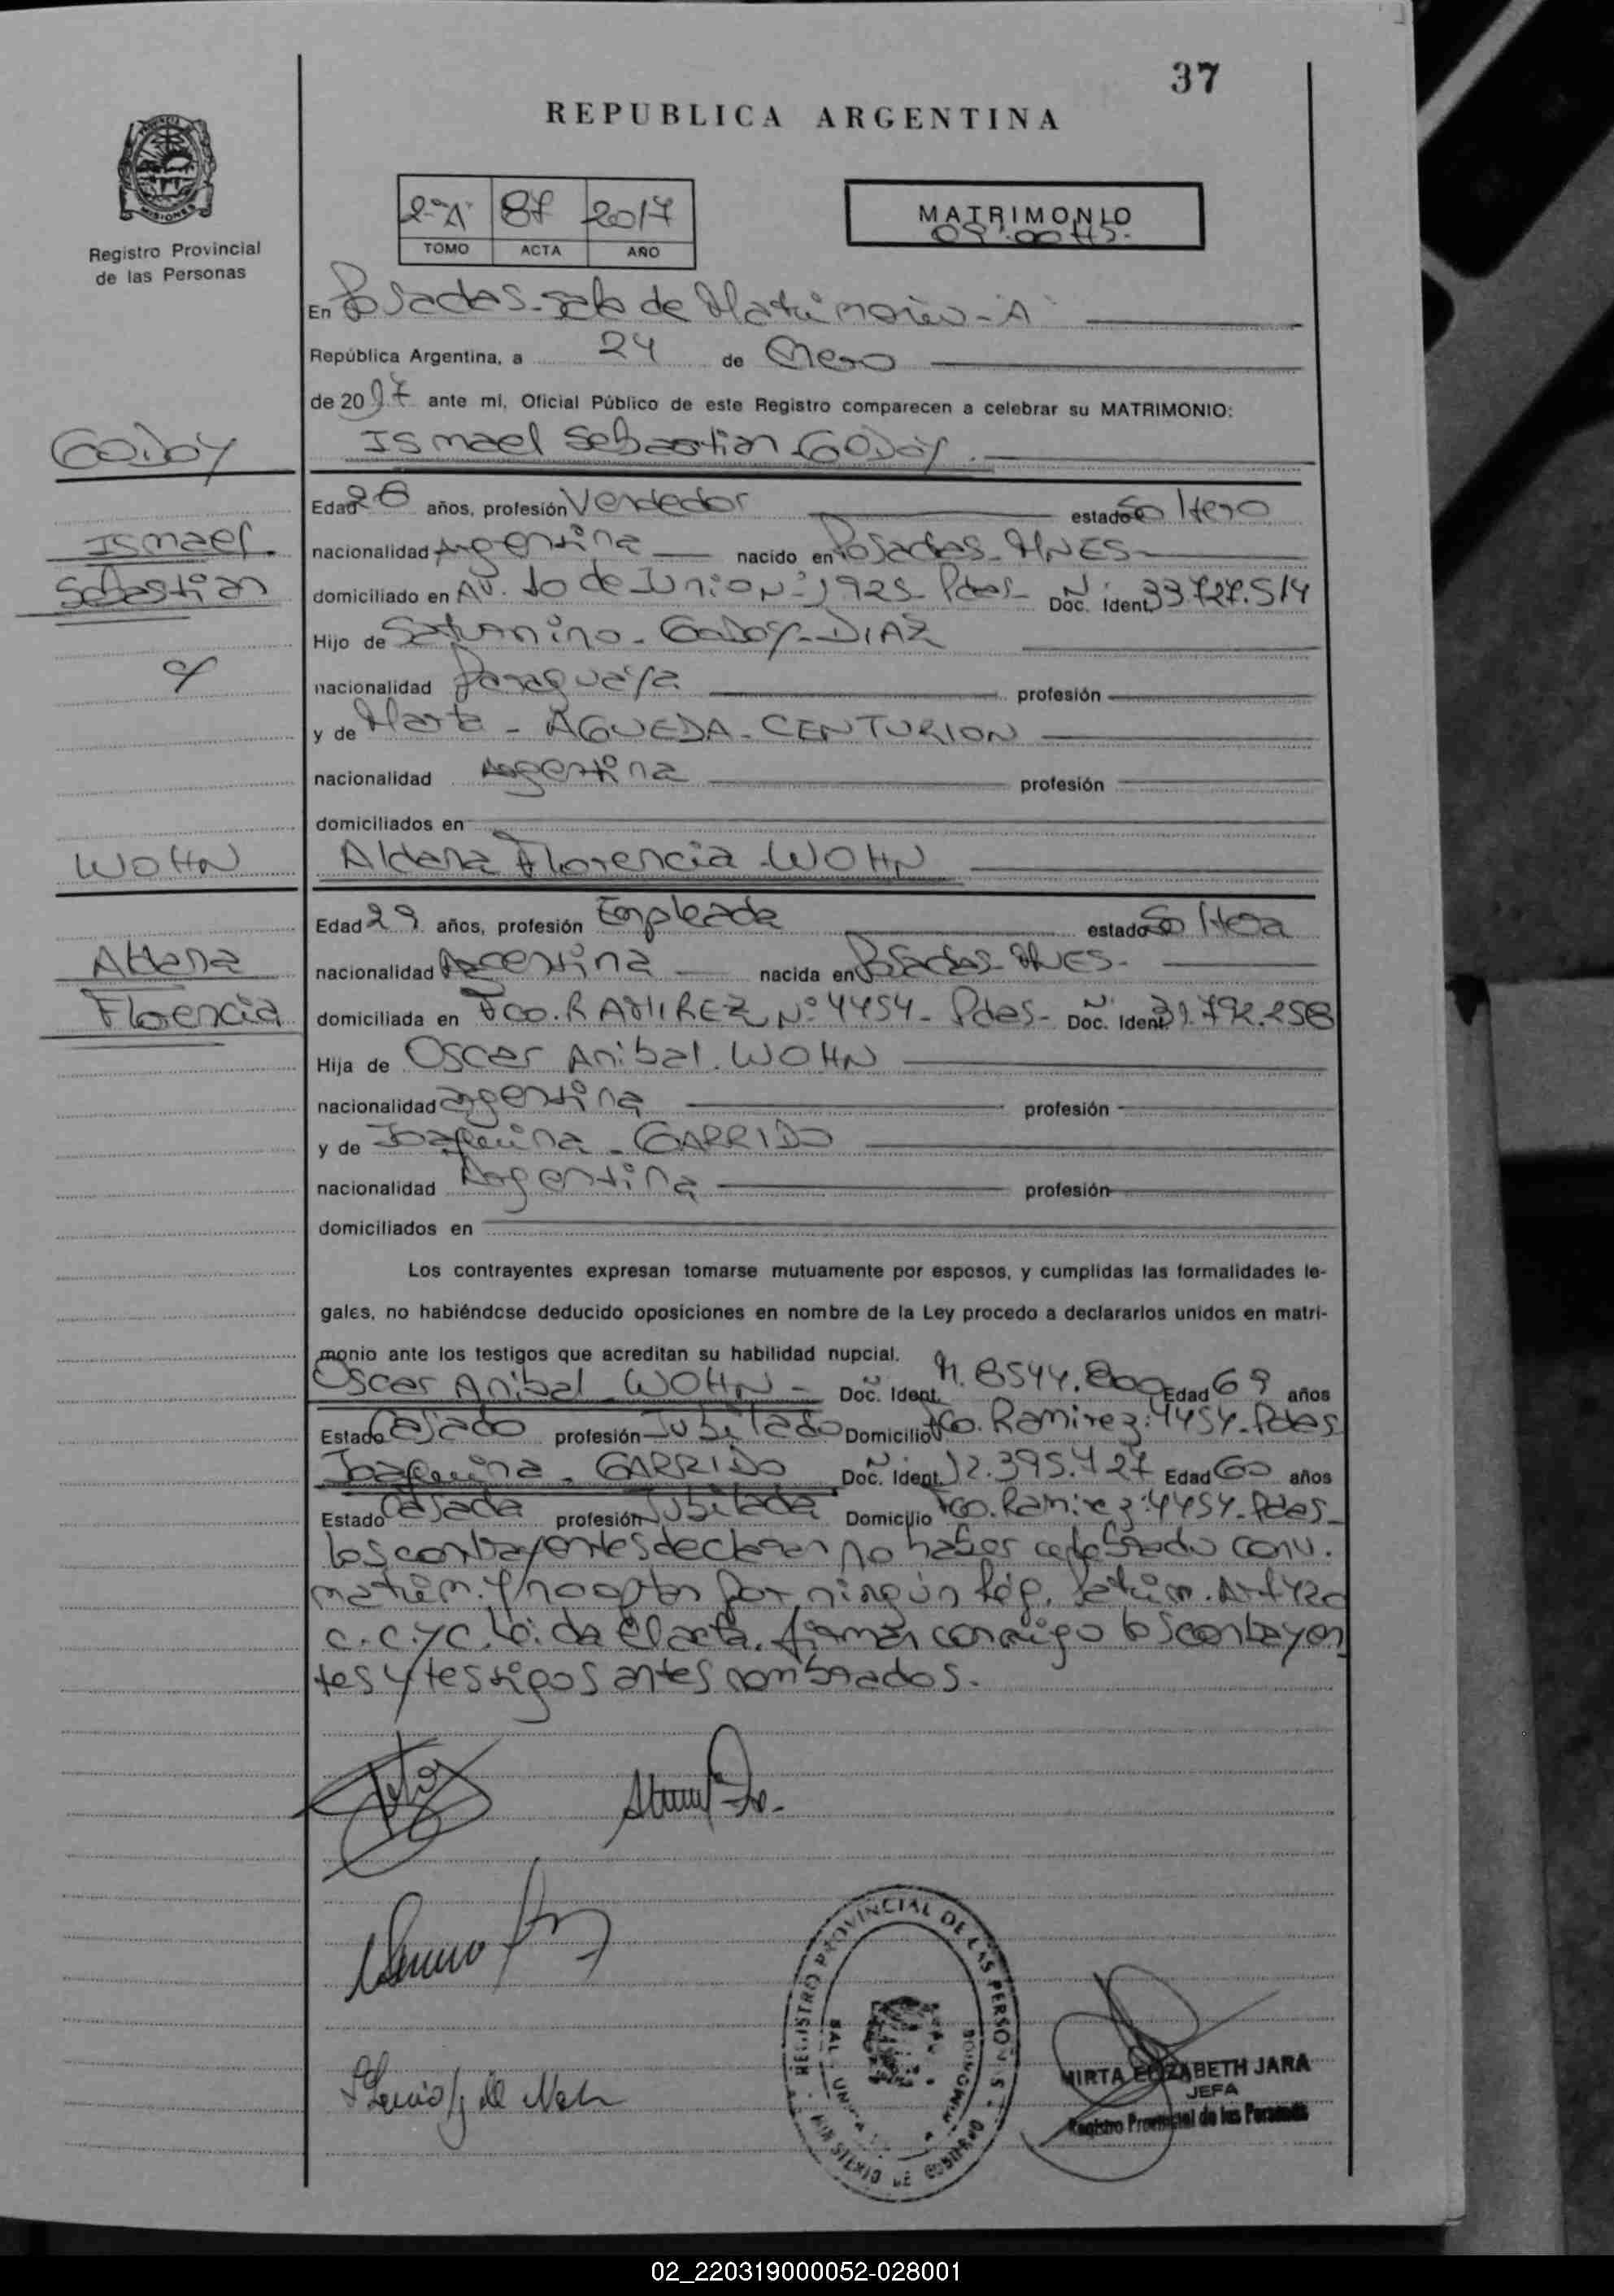 37
REPUBLICA ARGENTINA
MISIONES
Registro Provincial
de las Personas
2º "A" 87 2017
TOMO ACTA AÑO
MATRIMONIO
09:00 HS.
En Posadas - Sala de Matrimonios - A
República Argentina, a 24 de Enero
de 2017 ante mí, Oficial Público de este Registro comparecen a celebrar su MATRIMONIO:
GODOY
Ismael Sebastian GODOY.
Edad 28 años, profesión Vendedor estado Soltero
Ismael
nacionalidad Argentina nacido en Posadas - MNES -
Sebastian
domiciliado en AV. 10 de Junio Nº 1925 - Pdas - Doc. Ident. N. 33.727.514
Hijo de Saturnino - GODOY - DIAZ
y
nacionalidad Paraguaya profesión
y de Marta - AGUEDA - CENTURION
nacionalidad Argentina profesión
domiciliados en
WOHN
Aldana Florencia WOHN
Edad 29 años, profesión Empleada estado Soltera
Aldana
nacionalidad Argentina nacida en Posadas MNES -
Florencia
domiciliada en Fco. RAMIREZ Nº 4454 - Pdas - Doc. Ident. N. 31.792.258
Hija de Oscar Anibal. WOHN
nacionalidad argentina profesión
y de Joaquina - GARRIDO
nacionalidad Argentina profesión
domiciliados en
Los contrayentes expresan tomarse mutuamente por esposos, y cumplidas las formalidades le-
gales, no habiéndose deducido oposiciones en nombre de la Ley procedo a declararlos unidos en matri-
monio ante los testigos que acreditan su habilidad nupcial.
Oscar Anibal - WOHN - Doc. Ident. N. 8544.800 Edad 69 años
Estado Casado profesión Jubilado Domicilio Fco. Ramirez: 4454 - Pdas
Joaquina - GARRIDO Doc. Ident. N. 12.395.427 Edad 60 años
Estado Casada profesión Jubilada Domicilio Fco. Ramirez: 4454 - Pdas -
los contrayentes declaran no haber celebrado conv.
matrim. y no optan por ningún Rég. Patrim. Art 420
C.C.y C. Leída el acta, firman conmigo los contrayen
tes y testigos antes nombrados.
REGISTRO PROVINCIAL DE LAS PERSONAS
MINISTERIO DE GOBIERNO
MIRTA ELIZABETH JARA
JEFA
Registro Provincial de las Personas
02_220319000052-028001